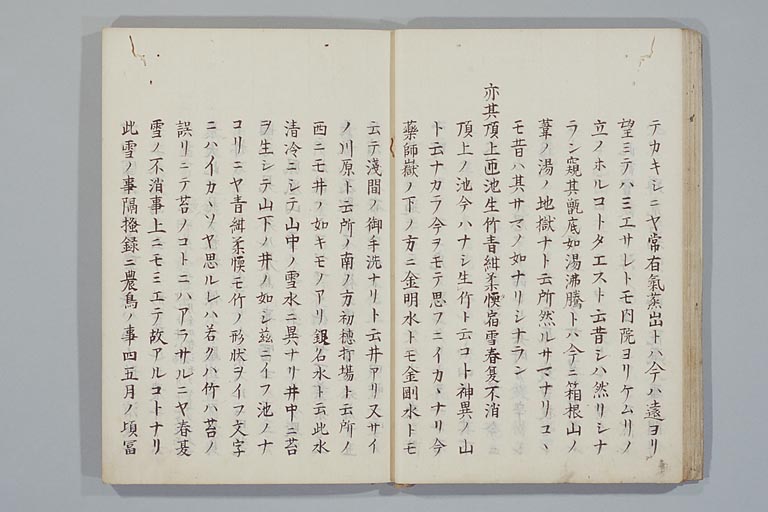 テカキシニヤ常有氣蒸出トハ今ハ遠ヨリ
望ミテハミエサレトモ内院ヨリケムリノ
立ノホルコトタエスト云昔シハ然リシナ
ラン窺其甑底如湯沸騰トハ今ニ箱根山ノ
葦ノ湯ノ地獄ナト云所然ルサマナリコヽ
モ昔ハ其サマノ如ナリシナラン
亦其頂上匝池生竹青紺柔愞宿雪春夏不消
頂上ノ池今ハナシ生竹ト云コト神異ノ山
ト云ナカラ今ヲモテ思フニイカヽナリ今
藥師嶽ノ下ノ方ニ金明水トモ金剛水トモ
云テ淺間ノ御手洗ナリト云井アリ又サイ
ノ川原ト云所ノ南ノ方初穂打場ト云所ノ
西ニモ井ノ如キモノアリ銀名水ト云此水
清冷ニシテ山中ノ雪水ニ異ナリ井中ニ苔
ヲ生シテ山下ノ井ノ如シ茲ニイフ池ノナ
コリニヤ青紺柔愞モ竹ノ形狀ヲイフ文字
ニハイカヽソヤ思ルレハ若クハ竹ハ苔ノ
誤リニテ苔ノコトニハアラサルニヤ春夏
雪ノ不消事上ニモミエテ故アルコトナリ
此雪ノ事隔掻録ニ農鳥ノ事四五月ノ頃冨